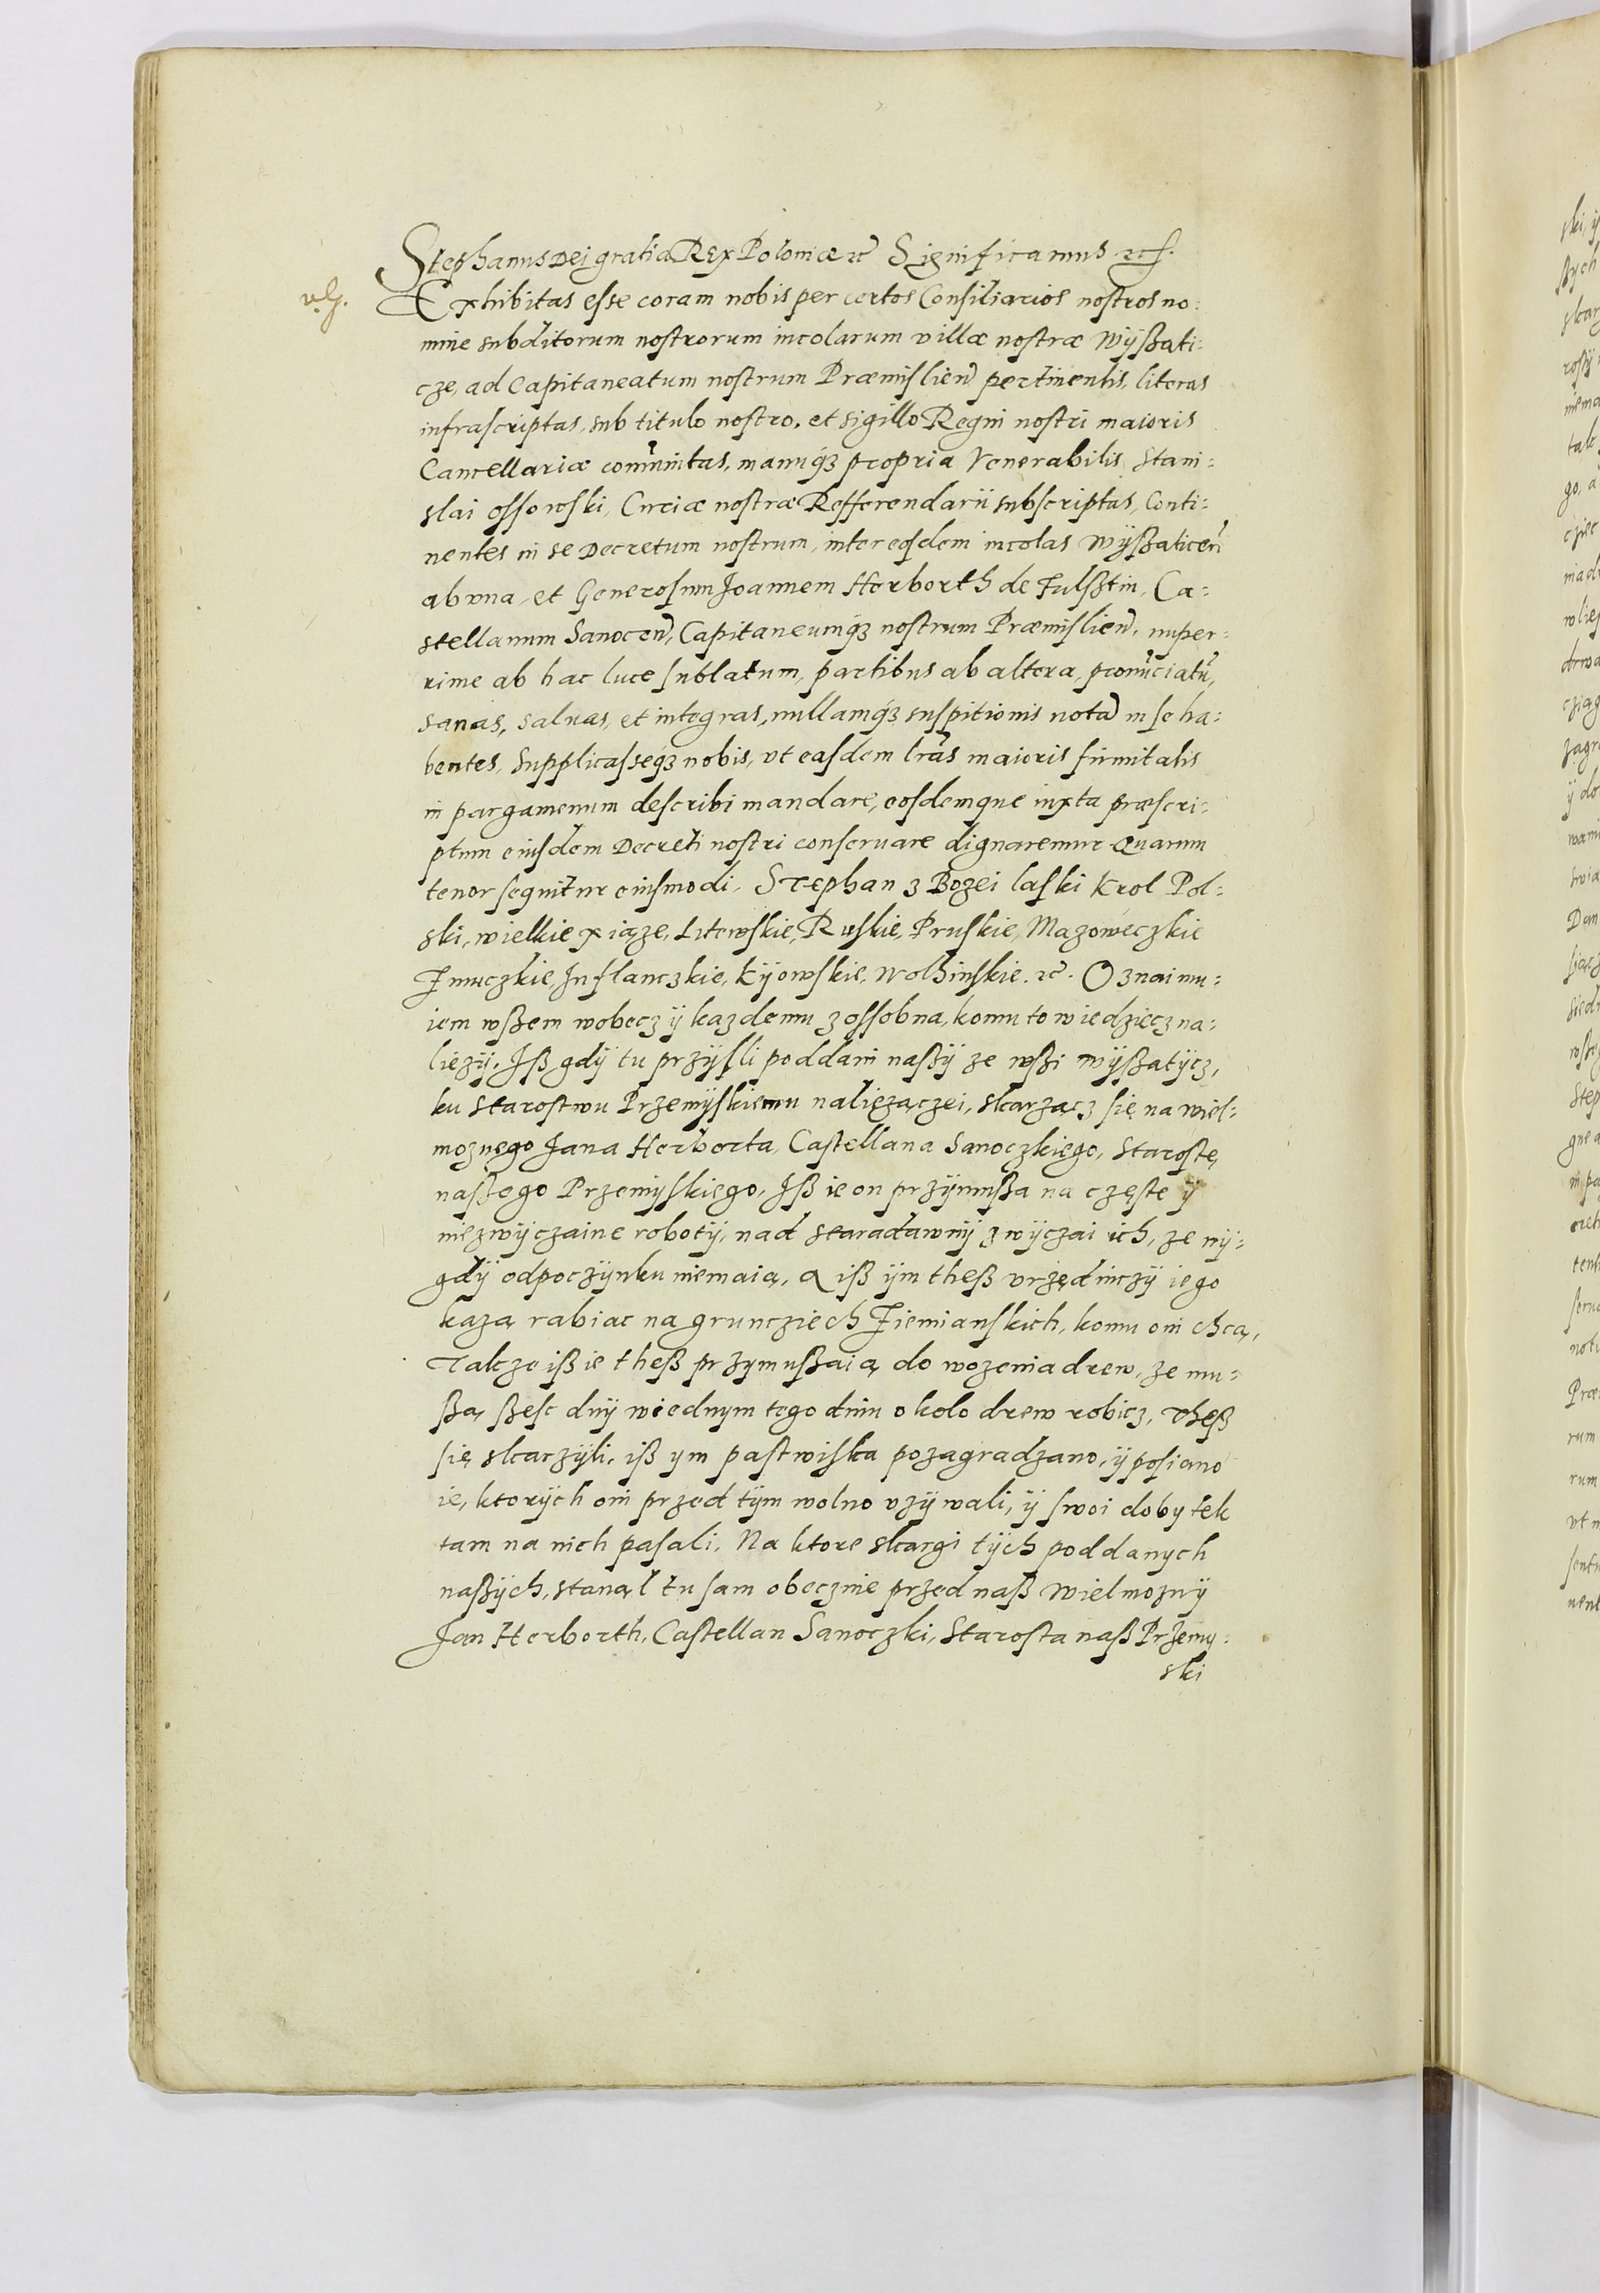 Stephanus Dei gratia Rex Poloniæ ꝛc̃ Significamus ꝛc̃.
Exhibitas esse coram nobis per certos Consiliarios nostros no:
mine subditorum nostrorum incolarum villæ nostræ Wÿßati:
cze, ad Capitaneatum nostrum Præmislieñ pertinentis, literas
infrascriptas, sub titulo nostro, et sigillo Regni nostri maioris
Cancellariæ com̃unitas, manuq́ꝫ propria Venerabilis Stani:
slai Ossowski, Curiæ nostræ Refferendarii subscriptas, Conti:
nentes in se Decretum nostrum, inter eosdem incolas Wÿßaticeñ
ab vna, et Generosum Joannem Herborth de Fulsztin, Ca:
stellanum Sanoceñ, Capitaneumq́ꝫ nostrum Præmislieñ, nuper:
rime ab hac luce sublatum, partibus ab altera, pronũciatũ,
sanas, saluas, et integras, nullamq́ꝫ suspitionis notã in se ha:
bentes, Supplicasseq́ꝫ nobis, vt easdem lr̃as maioris firmitatis
in pargamenum describi mandare, eosdemque iuxta præscri:
ptum eiusdem Decreti nostri conseruare dignaremur. Quarum
tenor sequitur eiusmodi. Stephan z Bozei laski Krol Pol:
ski, wielkie xiąze, Litewskie, Ruskie, Pruskie, Mazoweczkie
Zmuczkie, Inflanczkie, Kÿowskie, Wolhinskie. ꝛc̃. Oznaimu:
iem wßem wobecz ÿ kazdemu zossobna, komu to wiedziecz na:
liezÿ. Iß gdÿ tu przÿsli poddani naßÿ ze wßi Wÿßatÿcz,
ku Starostwu Przemÿskiemu naliezączei, skarzącz się na wiel:
moznego Jana Herborta, Castellana Sanoczkiego, Starostę
naßego Przemyskiego, Iß ie on przÿmußa na częste ÿ
niezwÿczaine robotÿ, nad staradawnÿ zwÿczai ich, ze nÿ:
gdÿ odpoczÿnku niemaią, A iß ÿm theß vrzędniczÿ iego
kazą rabiac na grunciech Ziemianskich, komu oni chcą,
Takze iß ie theß przymußaią do wozenia drew, ze mu:
ßą ßesc dnÿ wiednym tego dniu okolo drew robicz, Theß
się skarzÿli, iß ym pastwiska pozagradzano, ÿ posiano
ie, ktorÿch oni przed tÿm wolno vzÿwali, ÿ swoi dobytek
tam na nich pasali. Na ktore skargi tÿch poddanych
naßÿch, stanął tu sam obecznie przed naß Wielmoznÿ
Jan Herborth, Castellan Sanoczki, Starosta naß Przemy:
ski